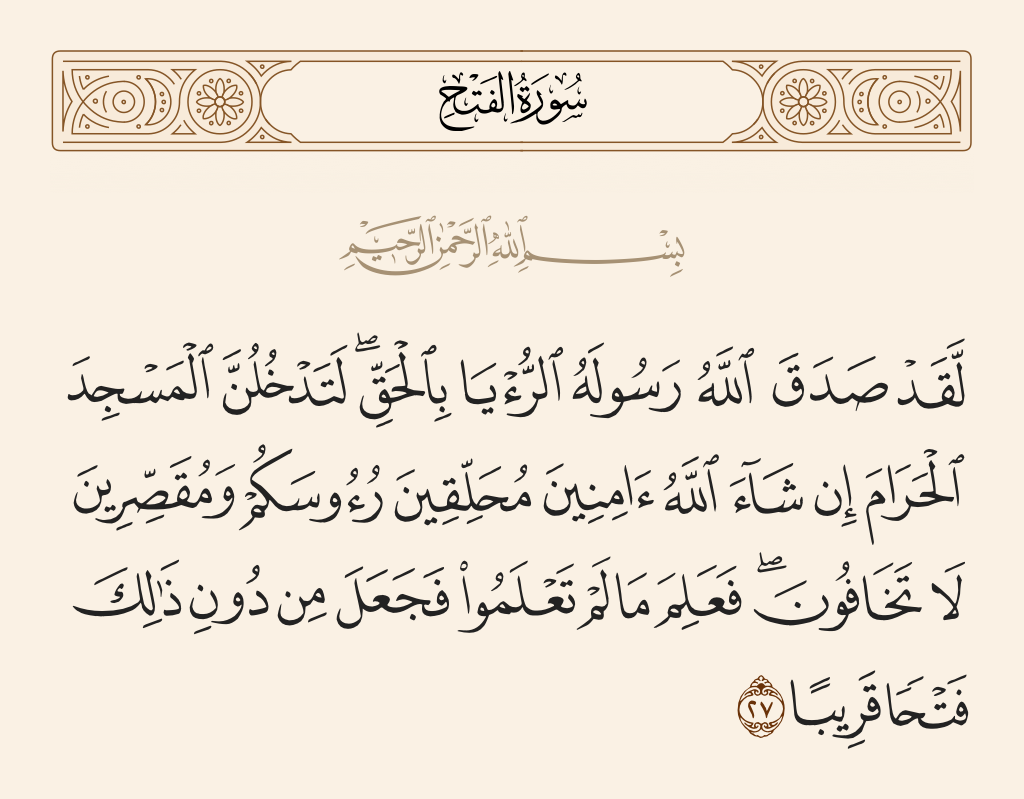 سُورَةُ الفَتْحِ
بِسْمِ ٱللَّهِ ٱلرَّحْمَٰنِ ٱلرَّحِيمِ
لَّقَدْ صَدَقَ ٱللَّهُ رَسُولَهُ ٱلرُّءْيَا بِٱلْحَقِّ ۖ لَتَدْخُلُنَّ ٱلْمَسْجِدَ
ٱلْحَرَامَ إِن شَآءَ ٱللَّهُ ءَامِنِينَ مُحَلِّقِينَ رُءُوسَكُمْ وَمُقَصِّرِينَ
لَا تَخَافُونَ ۖ فَعَلِمَ مَا لَمْ تَعْلَمُوا۟ فَجَعَلَ مِن دُونِ ذَٰلِكَ
فَتْحًا قَرِيبًا ٢٧